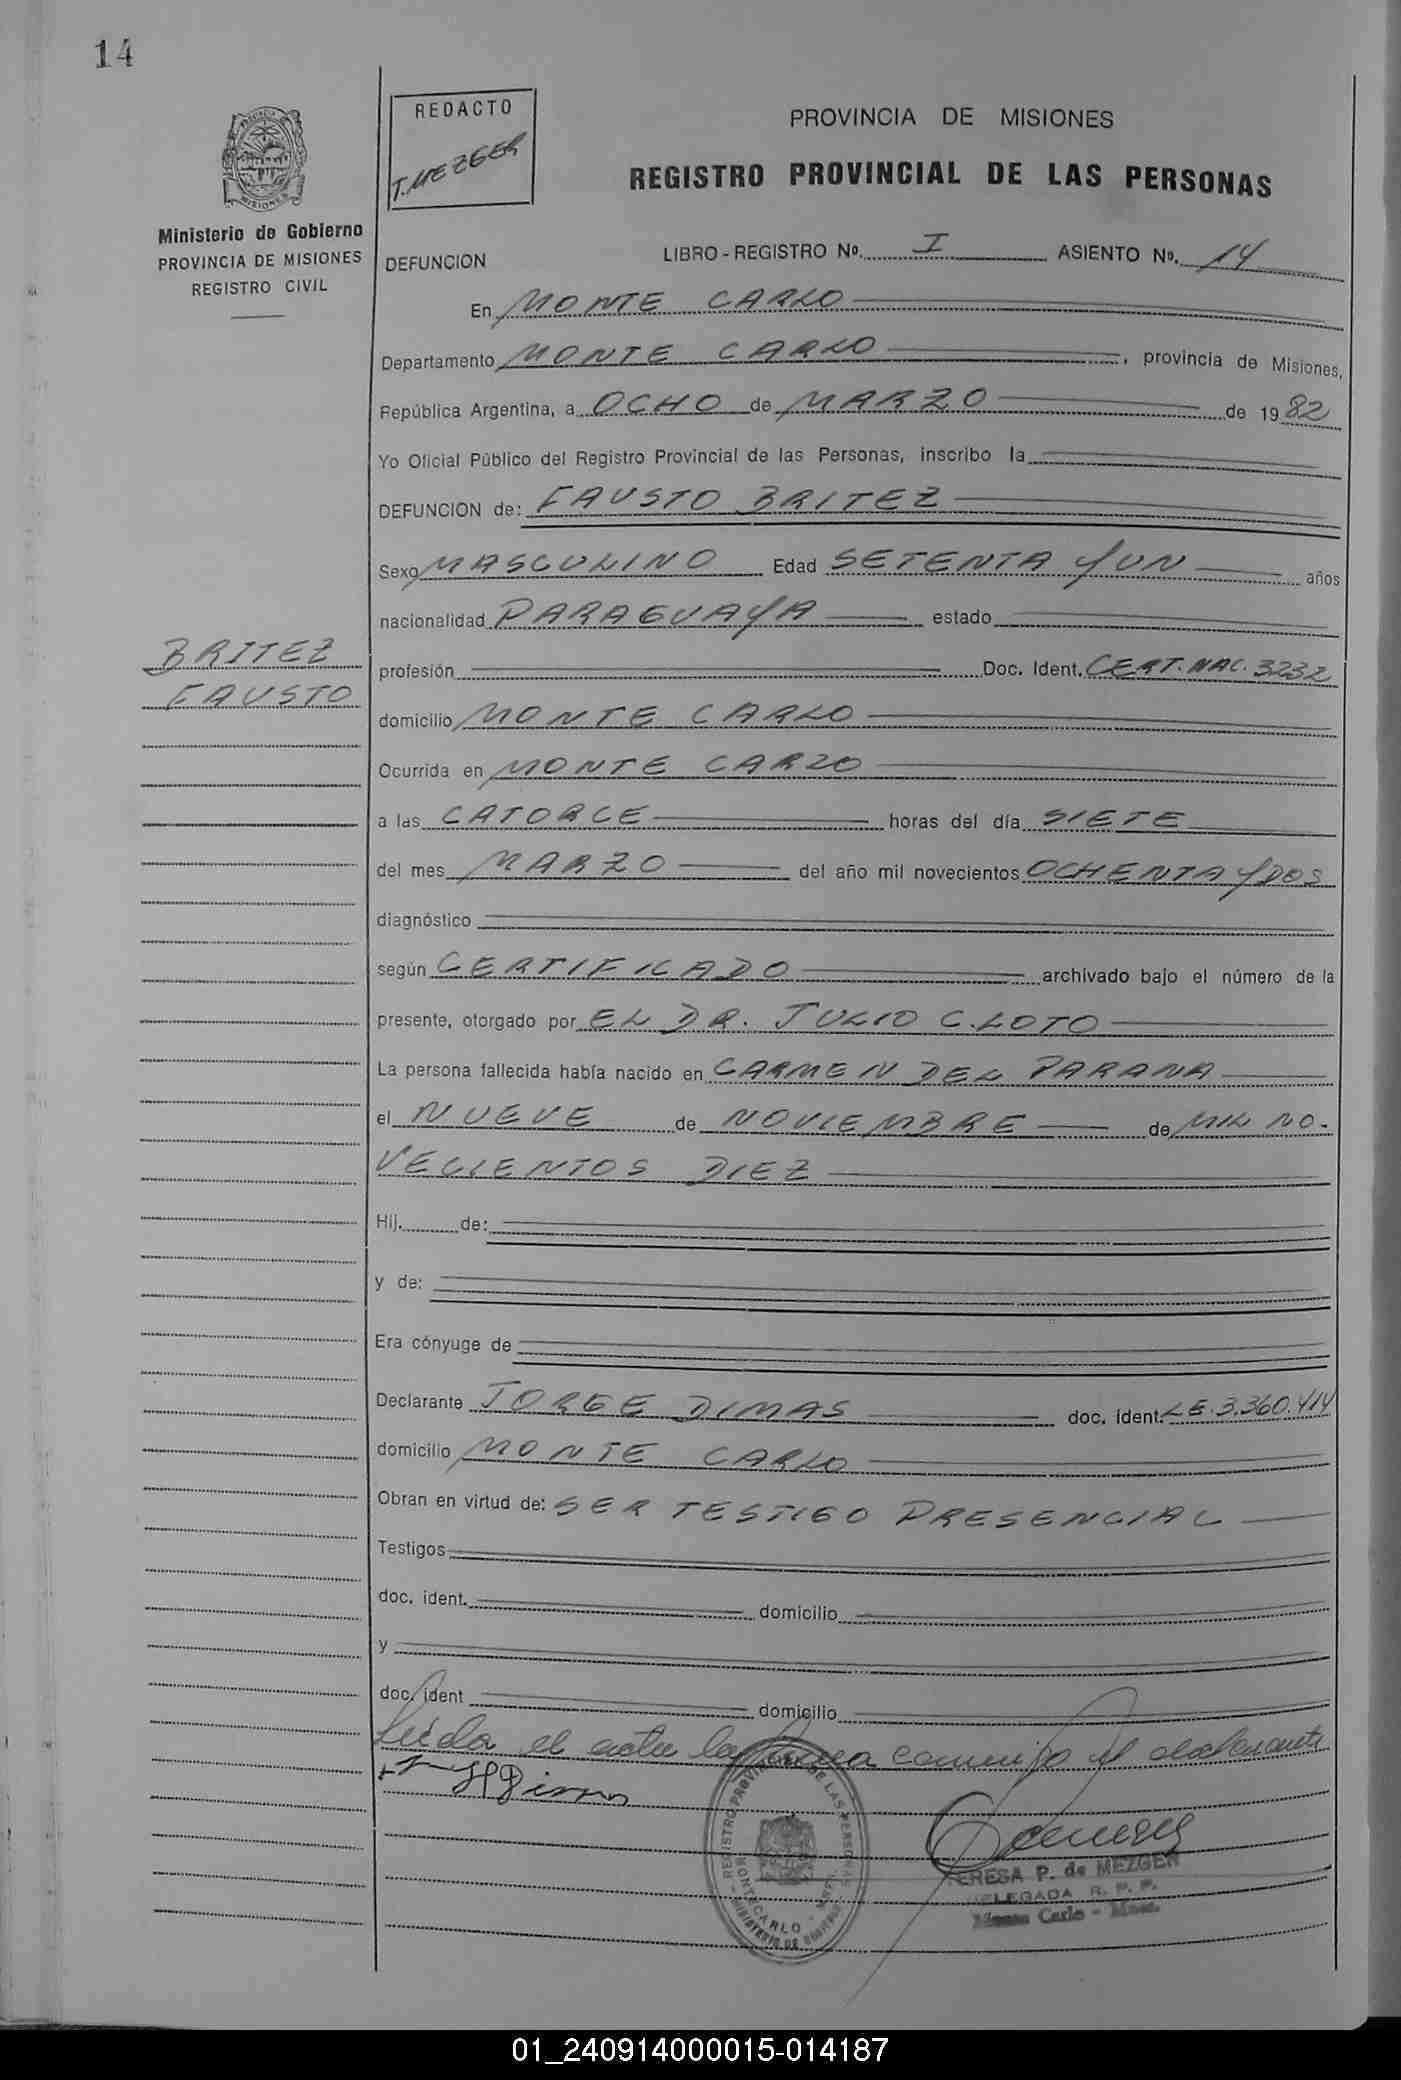 14
REDACTO
T. MEZGER
PROVINCIA DE MISIONES
REGISTRO PROVINCIAL DE LAS PERSONAS
Ministerio de Gobierno
PROVINCIA DE MISIONES
REGISTRO CIVIL
DEFUNCION LIBRO - REGISTRO Nº. I ASIENTO Nº. 14
En MONTE CARLO
Departamento MONTE CARLO, provincia de Misiones,
República Argentina, a OCHO de MARZO de 1982
Yo Oficial Público del Registro Provincial de las Personas, inscribo la
DEFUNCION de: FAUSTO BRITEZ
Sexo MASCULINO Edad SETENTA Y UN años
nacionalidad PARAGUAYA estado
BRITEZ
FAUSTO
profesión Doc. Ident. CERT. NAC. 3232
domicilio MONTE CARLO
Ocurrida en MONTE CARLO
a las CATORCE horas del día SIETE
del mes MARZO del año mil novecientos OCHENTA Y DOS
diagnóstico
según CERTIFICADO archivado bajo el número de la
presente, otorgado por EL DR. JULIO C. LOTO
La persona fallecida había nacido en CARMEN DEL PARANA
el NUEVE de NOVIEMBRE de MIL NO-
VECIENTOS DIEZ
Hij. de:
y de:
Era cónyuge de
Declarante JORGE DIMAS doc. ident. LE. 3.360.414
domicilio MONTE CARLO
Obran en virtud de: SER TESTIGO PRESENCIAL
Testigos
doc. ident. domicilio
y
doc. ident domicilio
Leída el acta la firma conmigo el declarante
REGISTRO PROVINCIAL DE LAS PERSONAS
MONTECARLO - MNES.
MINISTERIO DE GOBIERNO
TERESA P. de MEZGER
DELEGADA R. P. P.
Monte Carlo - Mnes.
01_240914000015-014187